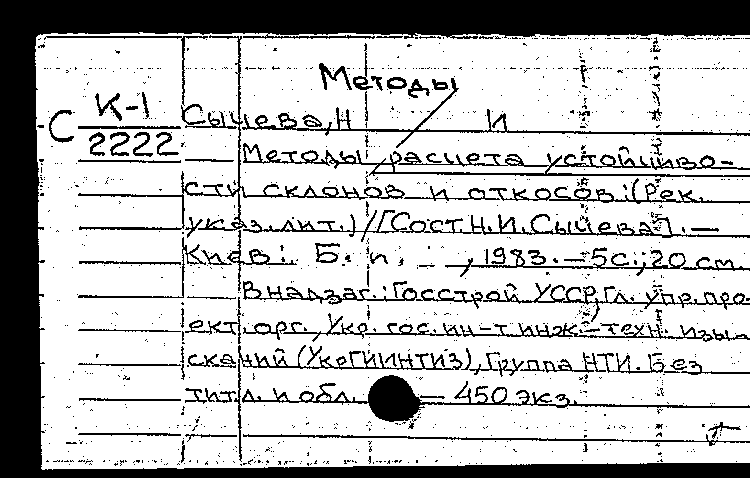 Методы
С К-1
2222
Сычева, Н И
Методы расчета устойчиво-
сти склонов и откосов: (Рек.
указ. лит.) / [Сост. Н. И. Сычева]. —
Киев: Б. и. , 1983. — 5 с.; 20 см.
В надзаг.: Госстрой УССР, Гл. упр. про-
ект. орг., Укр. гос. ин-т инж.-техн. изы-
сканий (УкрГИИНТИЗ), Группа НТИ. Без
тит. л. и обл. — 450 экз.